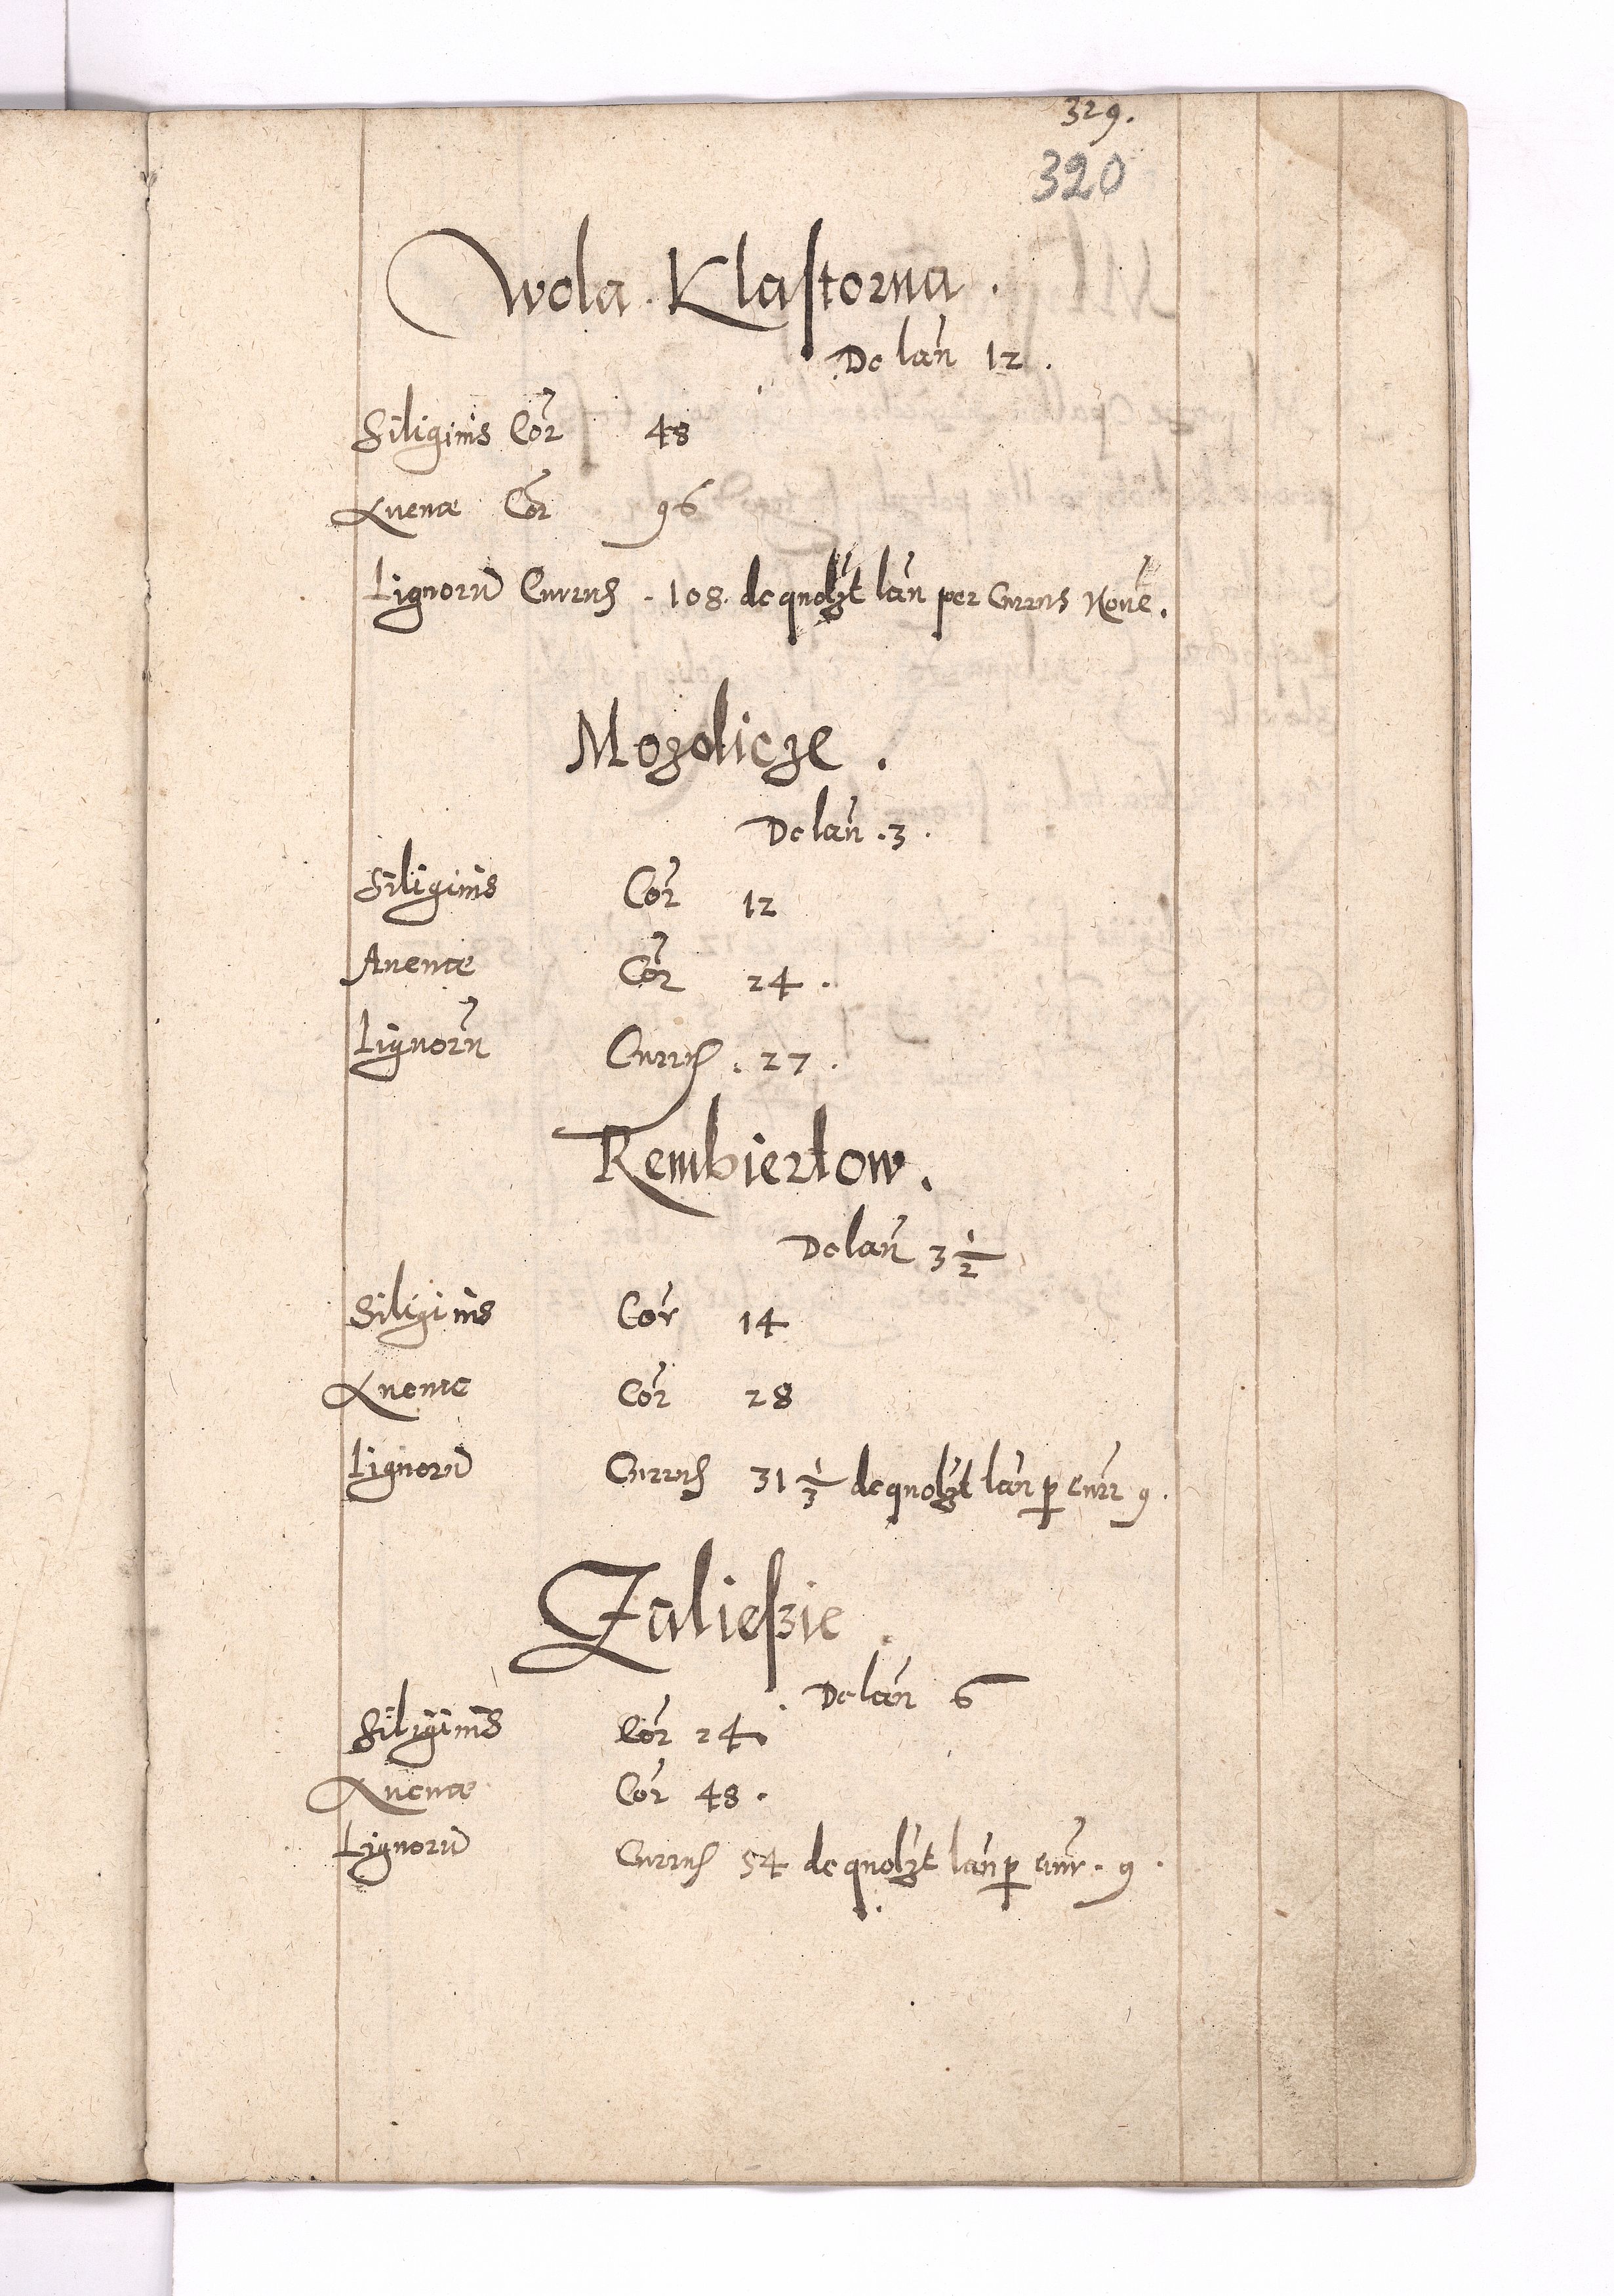 329.
320
Wola Klastorna.
De lan 12.
Siliginis Cor 48
Auenae Cor 96
Lignorū Currus .108. de quolzt lan per Currus Nouē.
Mozolicze.
De lan .3.
Siliginis Cor 12
Auenae Cor 24.
Lignorū Currus . 27.
Rembiertow.
De lan 3 1/2
Siliginis Cor 14
Auenae Cor 28
Lignorū Currus 31 1/3 de quolzt lan p curr 9.
Zalieszie.
De lan 6
Siliginis Cor 24
Auenae Cor 48.
Lignorū Currus 54 de quolzt lan p curr. 9.